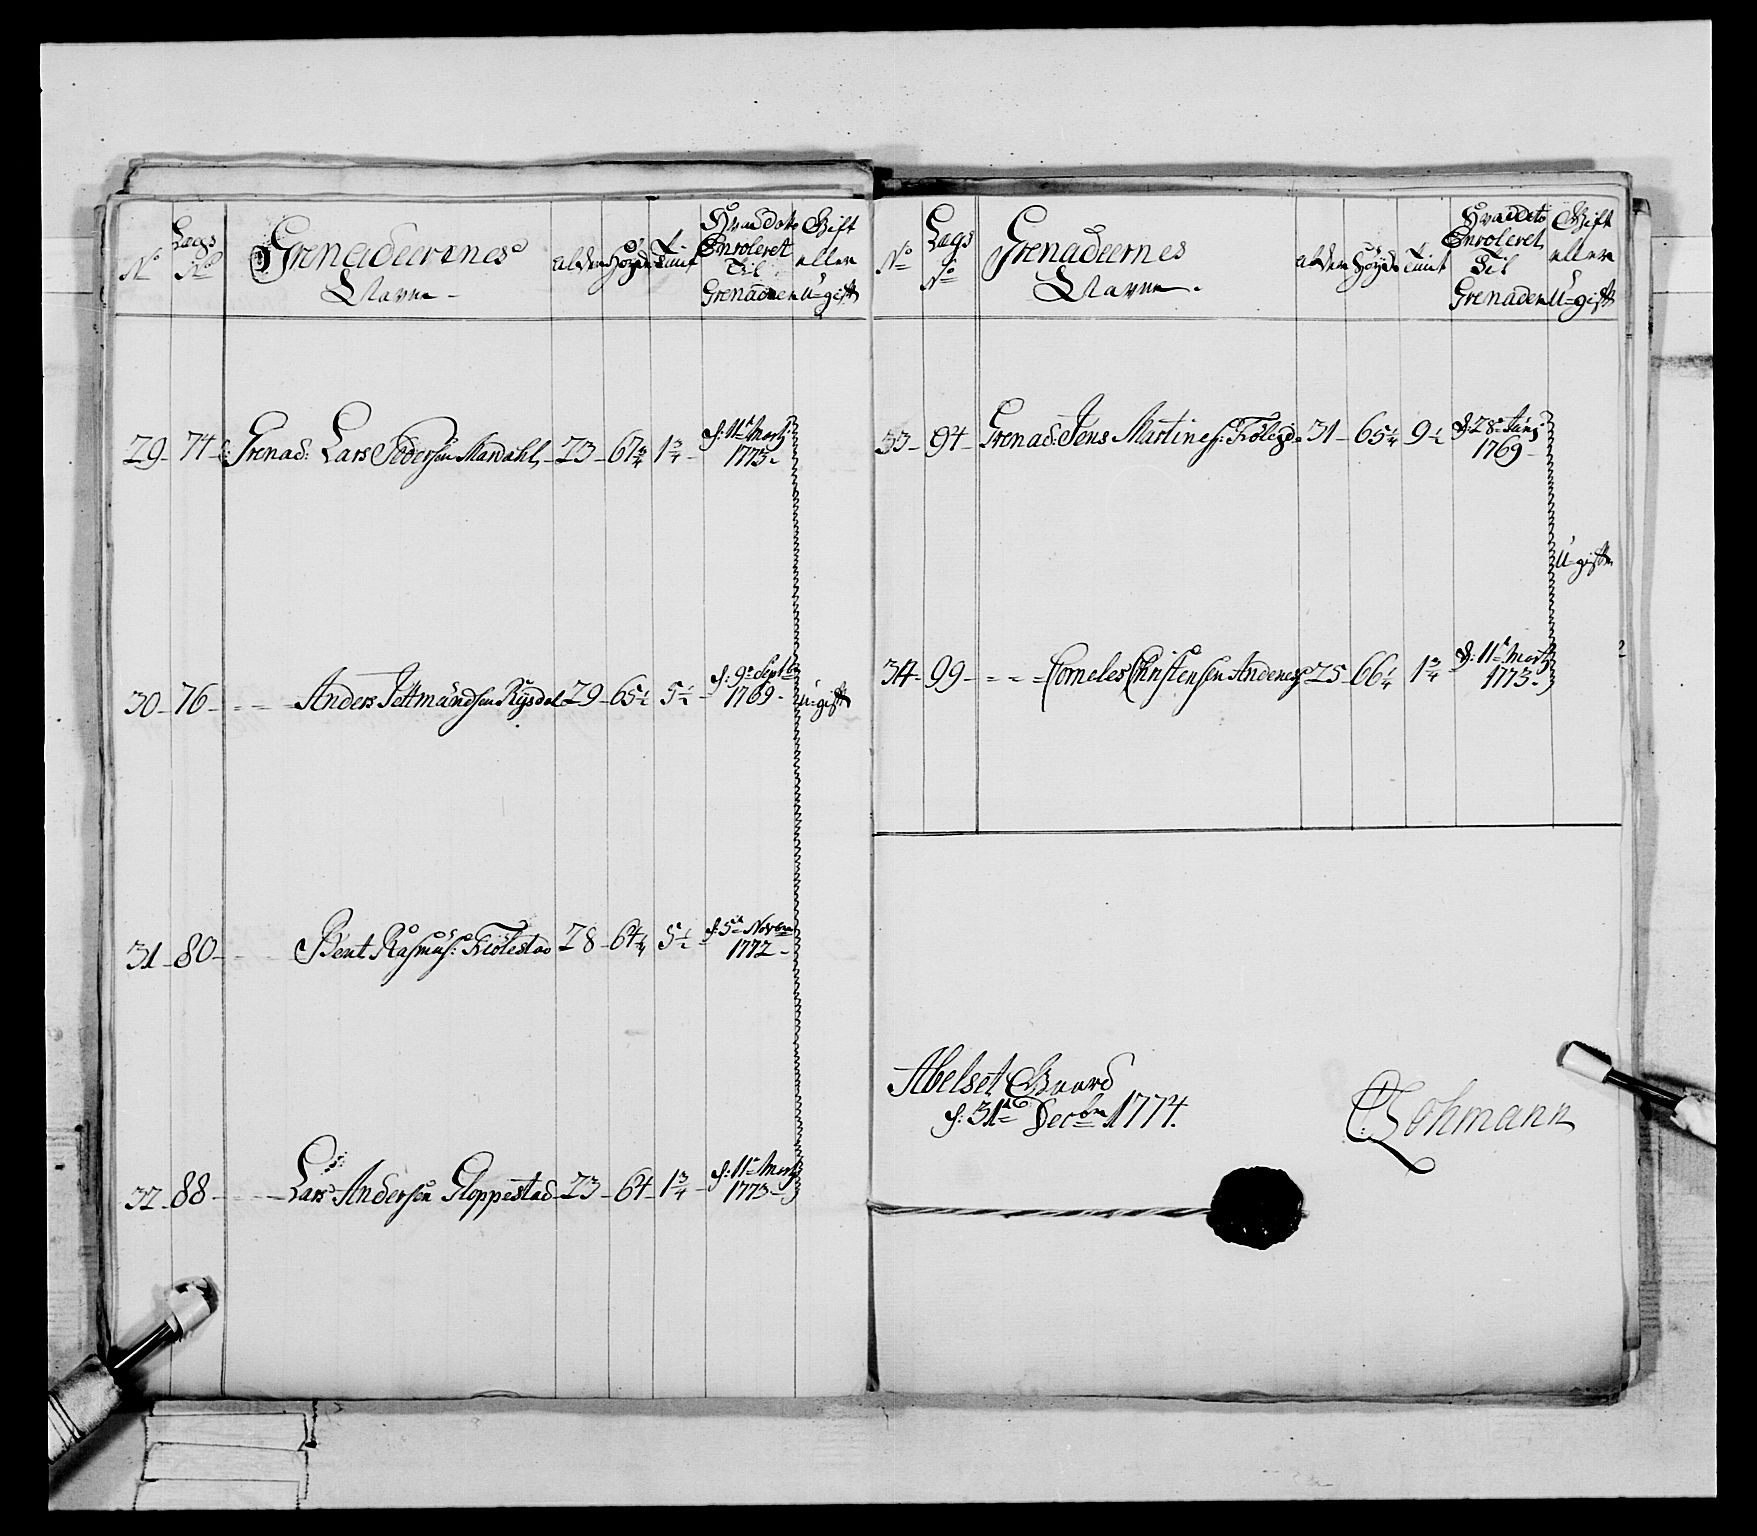 No
Lægs No
Grenadeerernes Navne -
alder
Høyde
Tiimt
Hvad dato Enroleret Til Grenadeer
Gift eller U-gift
29 - 74 - Grenad: Lars Pedersen Mardahl - 23 - 67 3/4 - 1 3/4 - d: 11te Marty 1773 -
30 - 76 - - - Anders Tettmandsen Rysdal 29 - 65 1/2 5 1/2 - d: 9de Septbr 1769 - U-gift
31 - 80 - - - Bent Rasmus: Fiölestad 28 - 64 1/4 5 1/2 - d: 5te Novbr 1772 -
32 - 88 - - - Lars Andersen Gloppestad - 23 - 64 - 1 3/4 - d: 11te Marty 1773 -
No
Lægs No
Grenadeernes Navne -
alder
Høyde
Tiimt
Hvad dato Enroleret Til Grenadeer
Gift eller U-gift
33 - 94 - Grenad: Jens Martines: 31 - 65 1/4 9 1/2 d: 28de 1769 -
U-gift
34 - 99 - - - Corneles Christensen Andenes 25 - 66 1/4 1 3/4 - d: 11te Marty 1773 -
Abelset Gaard
d: 31te Decbr 1774.
Lohmann